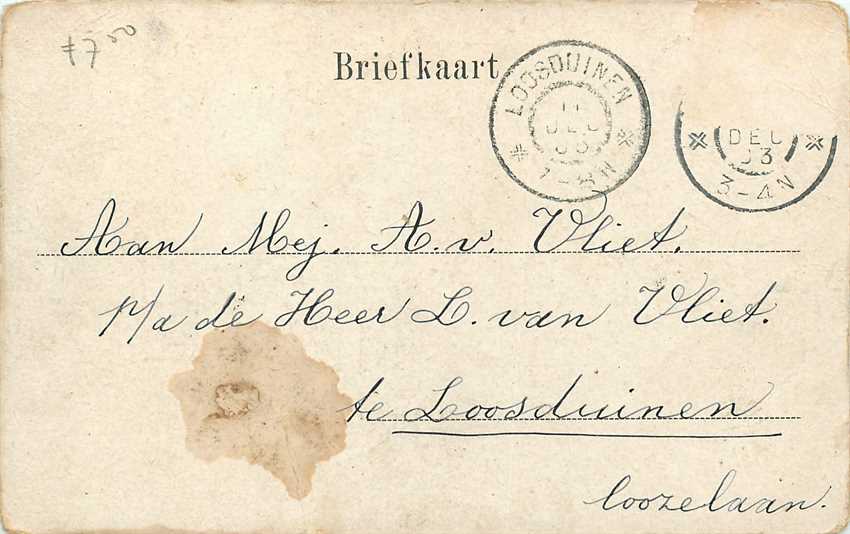 f 7.00
Briefkaart
LOOSDUINEN
11
DEC
03
DEC
03
3-4N
Aan Mej. A. v. Vliet.
p/a de Heer L. van Vliet.
te Loosduinen
loozelaan.